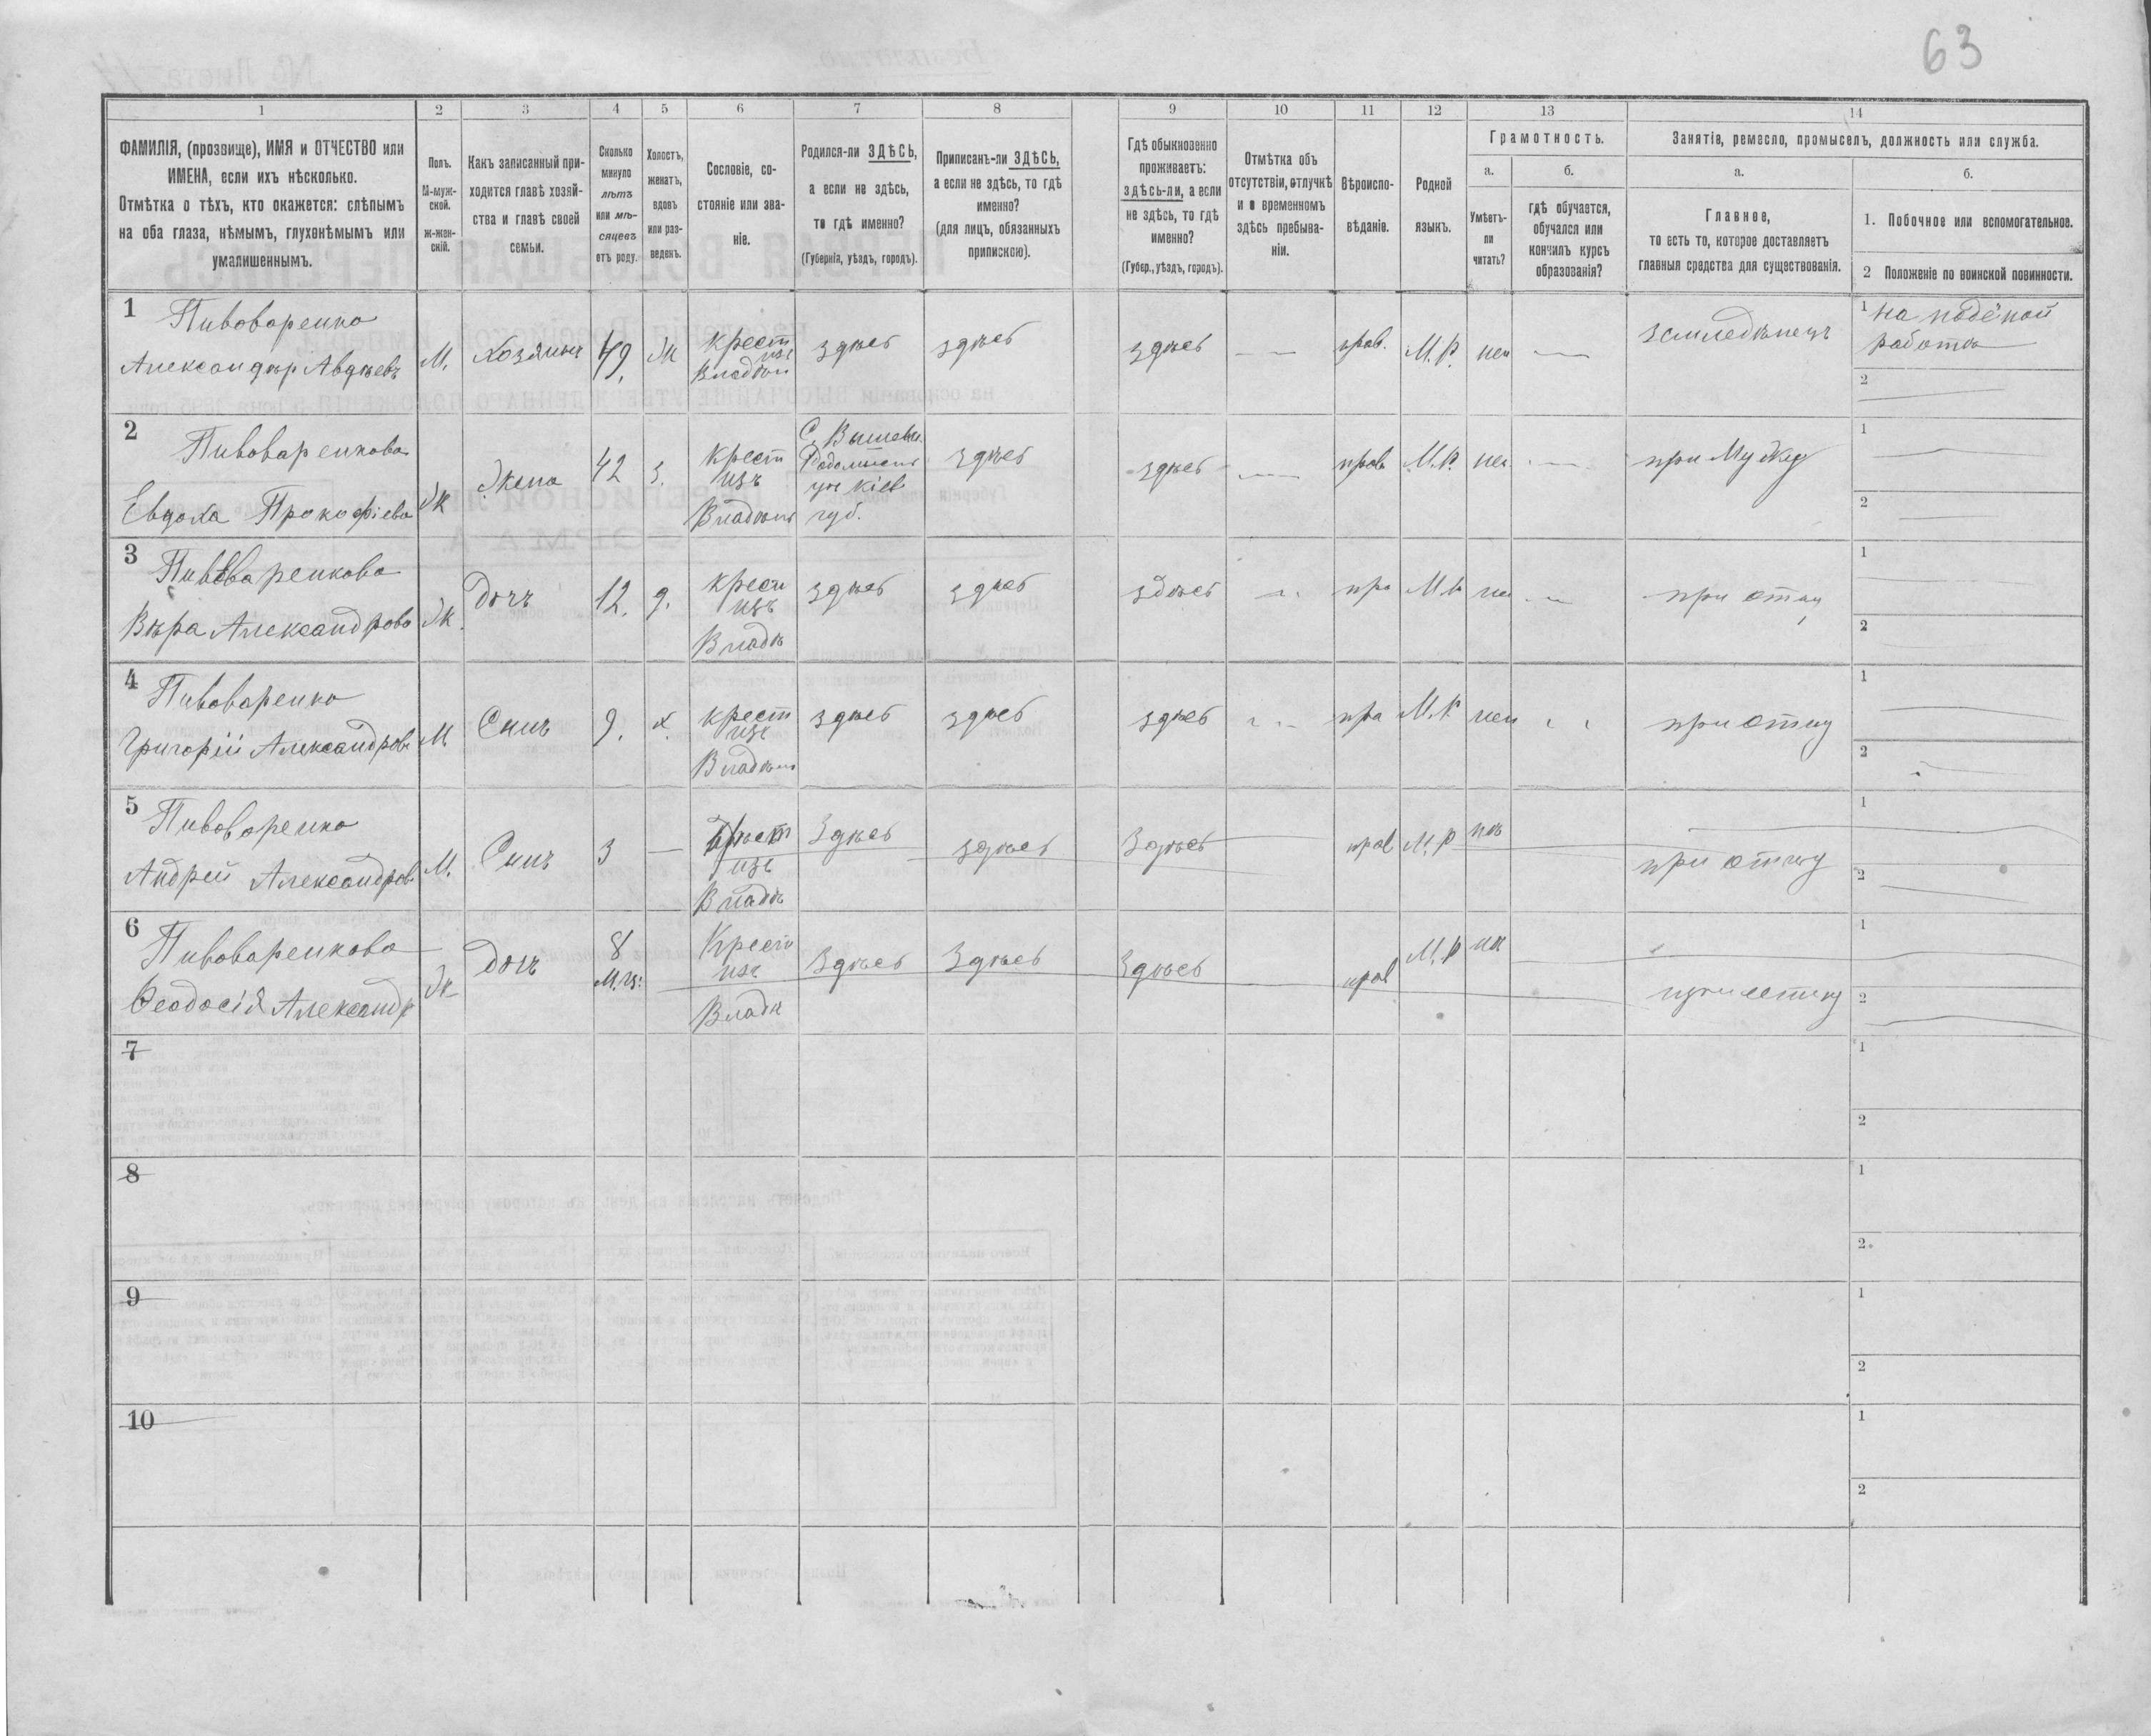 63
1
2
3
4
5
6
7
8
9
10
11
12
13
14
ФАМИЛІЯ, (прозвище), ИМЯ и ОТЧЕСТВО или
ИМЕНА, если ихъ нѣсколько.
Отмѣтка о тѣхъ, кто окажется: слѣпымъ
на оба глаза, нѣмымъ, глухонѣмымъ или
умалишеннымъ.
Полъ.
М-муж-
ской.
ж-жен-
скій.
Какъ записанный при-
ходится главѣ хозяй-
ства и главѣ своей
семьи.
Сколько
минуло
лѣтъ
или мѣ-
сяцевъ
отъ роду.
Холостъ,
женатъ,
вдовъ
или раз-
веденъ.
Сословіе, со-
стояніе или зва-
ніе.
Родился-ли ЗДѢСЬ,
а если не здѣсь,
то гдѣ именно?
(Губернія, уѣздъ, городъ).
Приписанъ-ли ЗДѢСЬ,
а если не здѣсь, то гдѣ
именно?
(для лицъ, обязанныхъ
припискою).
Гдѣ обыкновенно
проживаетъ:
здѣсь-ли, а если
не здѣсь, то гдѣ
именно?
(Губер., уѣздъ, городъ).
Отмѣтка объ
отсутствіи, отлучкѣ
и о временномъ
здѣсь пребыва-
ніи.
Вѣроиспо-
вѣданіе.
Родной
языкъ.
Грамотность.
а.
Умѣетъ-
ли
читать?
б.
гдѣ обучается,
обучался или
кончилъ курсъ
образованія?
Занятія, ремесло, промыселъ, должность или служба.
а.
Главное,
то есть то, которое доставляетъ
главныя средства для существованія.
б.
1. Побочное или вспомогательное.
2 Положеніе по воинской повинности.
1
Пивоваренко
Александръ Авдѣевъ
М.
Хозяинъ
49.
Ж
крест
изъ
Владѣл
здѣсь
здѣсь
здѣсь
прав.
М.Р.
нет
земледѣлецъ
1 на подёной
работѣ
2
2
Пивоваренкова
Евдоха Прокофіева
Ж
Жена
42
з.
крест
изъ
Владѣл
С. Вышевы
Радомысл
уѣ Кіев
губ.
здѣсь
здѣсь
прав
М.Р.
нет
при Мужу
1
2
3
Пивоваренкова
Вѣра Александрова
Ж
Дочъ
12.
д.
крест
изъ
Владѣ
здѣсь
здѣсь
здѣсь
пра
М.Р
не
при отцу
1
2
4
Пивоваренко
Григорій Александров
М
Сынъ
9.
х.
крест
изъ
Владѣл
здѣсь
здѣсь
здѣсь
пра
М.Р
нет
при отцу
1
2
5
Пивоваренко
Андрей Александров
М.
Сынъ
3
крест
изъ
Владѣ
Здѣсь
здѣсь
Здѣсь
прав
М.Р
нѣ
при отцу
1
2
6
Пивоваренкова
Феодосія Александр
Ж
Дочъ
8
м.ц.
Крест
изъ
Владѣ
Здѣсь
Здѣсь
Здѣсь
прав
М.Р
нѣ
при отцу
1
2
7
1
2
8
1
2
9
1
2
10
1
2